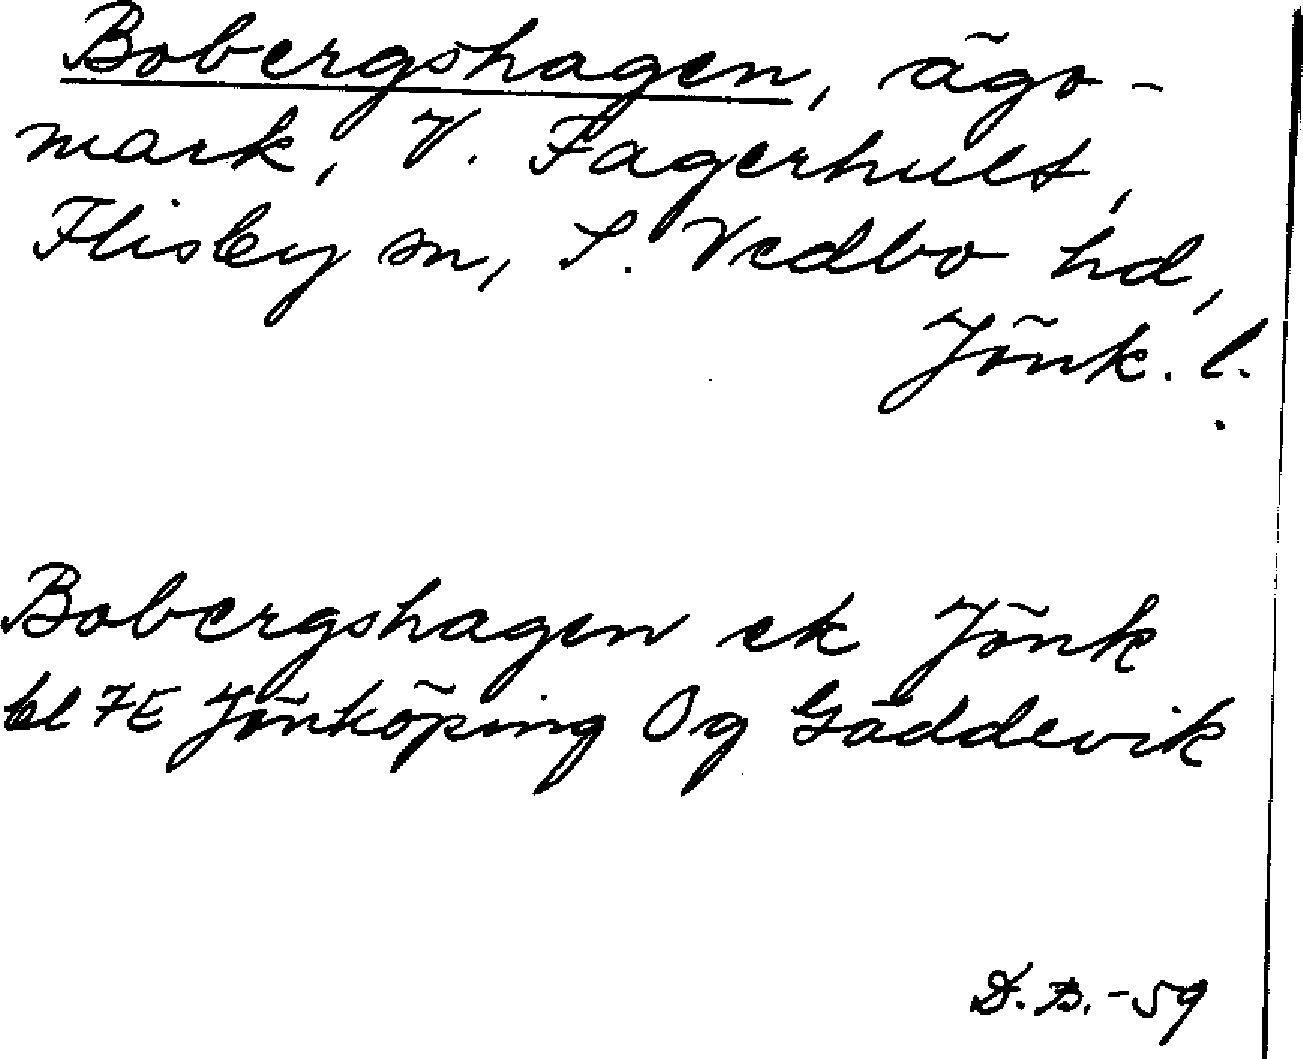 Bobergshagen, ägo-
mark, V. Fagerhult,
Flisby sn, S. Vedbo hd,
Jönk. l.
Bobergshagen ek Jönk
bl 7E Jönköping Og Gäddevik
D. B. -59